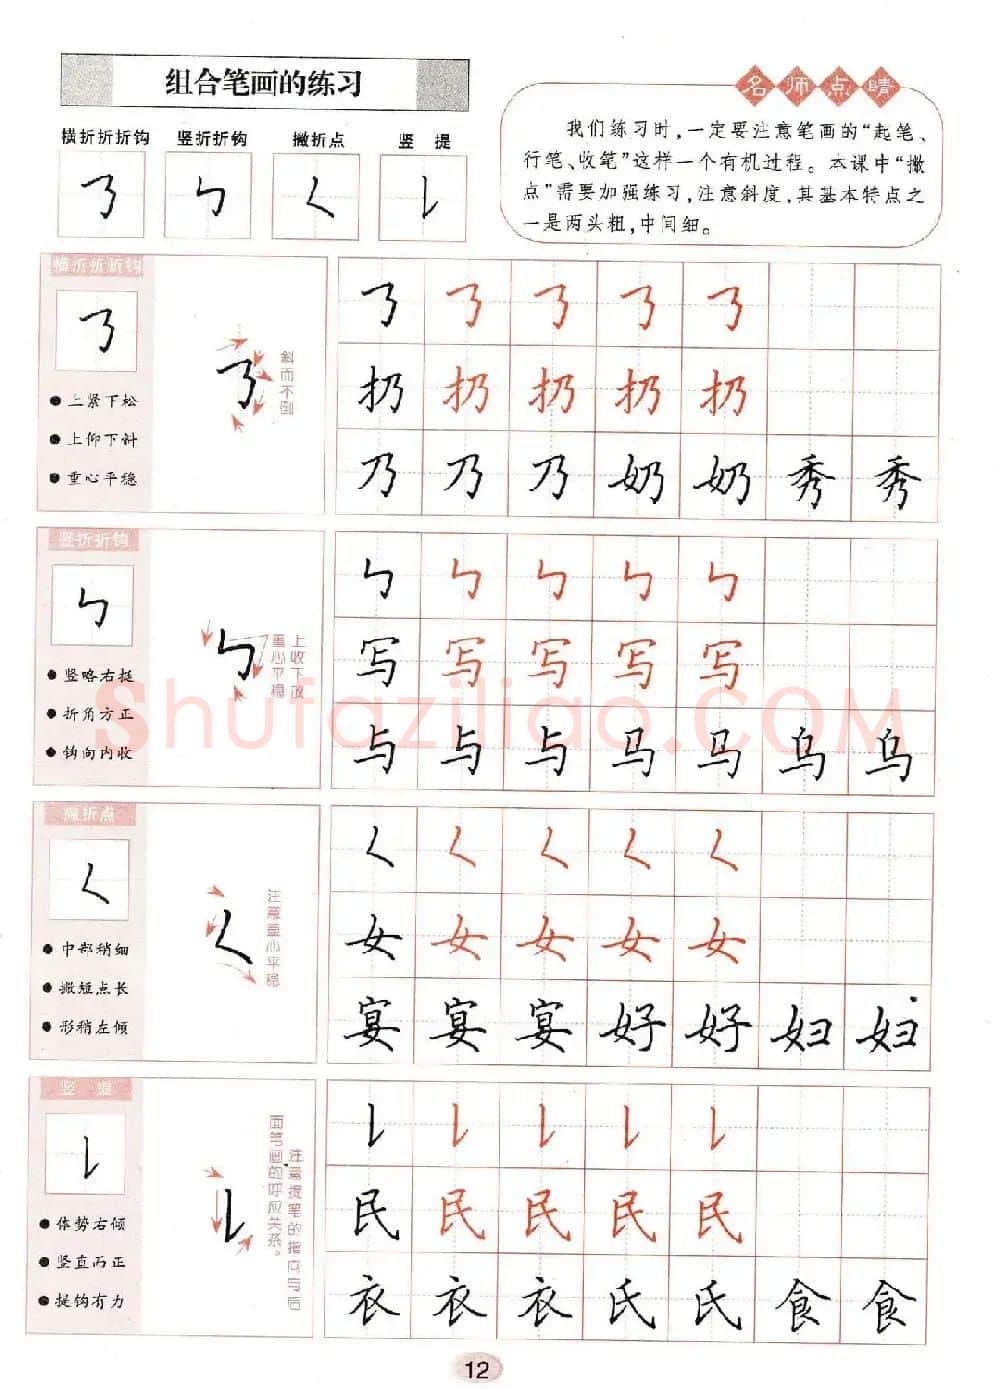 组合笔画的练习
名师点睛
横折折折钩 竖折折钩 撇折点 竖 提
㇡ ㇉ ㇛ ㇙
我们练习时,一定要注意笔画的“起笔、
行笔、收笔”这样一个有机过程。本课中“撇
点”需要加强练习,注意斜度,其基本特点之
一是两头粗,中间细。
横折折折钩
㇡
上紧下松
上仰下斜
重心平稳
斜而不倒
㇡ ㇡ ㇡ ㇡ ㇡
扔 扔 扔 扔 扔
乃 乃 乃 奶 奶 秀 秀
竖折折钩
㇉
竖略右挺
折角方正
钩向内收
上收下放
重心平稳
㇉ ㇉ ㇉ ㇉ ㇉
写 写 写 写 写
与 与 与 马 马 乌 乌
Shufaziliao.COM
撇折点
㇛
中部稍细
撇短点长
形稍左倾
注意重心平稳
㇛ ㇛ ㇛ ㇛ ㇛
女 女 女 女 女
宴 宴 宴 好 好 妇 妇
竖 提
㇙
体势右倾
竖直而正
提钩有力
注意提笔的指向与后
面笔画的呼应关系。
㇙ ㇙ ㇙ ㇙ ㇙
民 民 民 民 民
衣 衣 衣 氏 氏 食 食
12